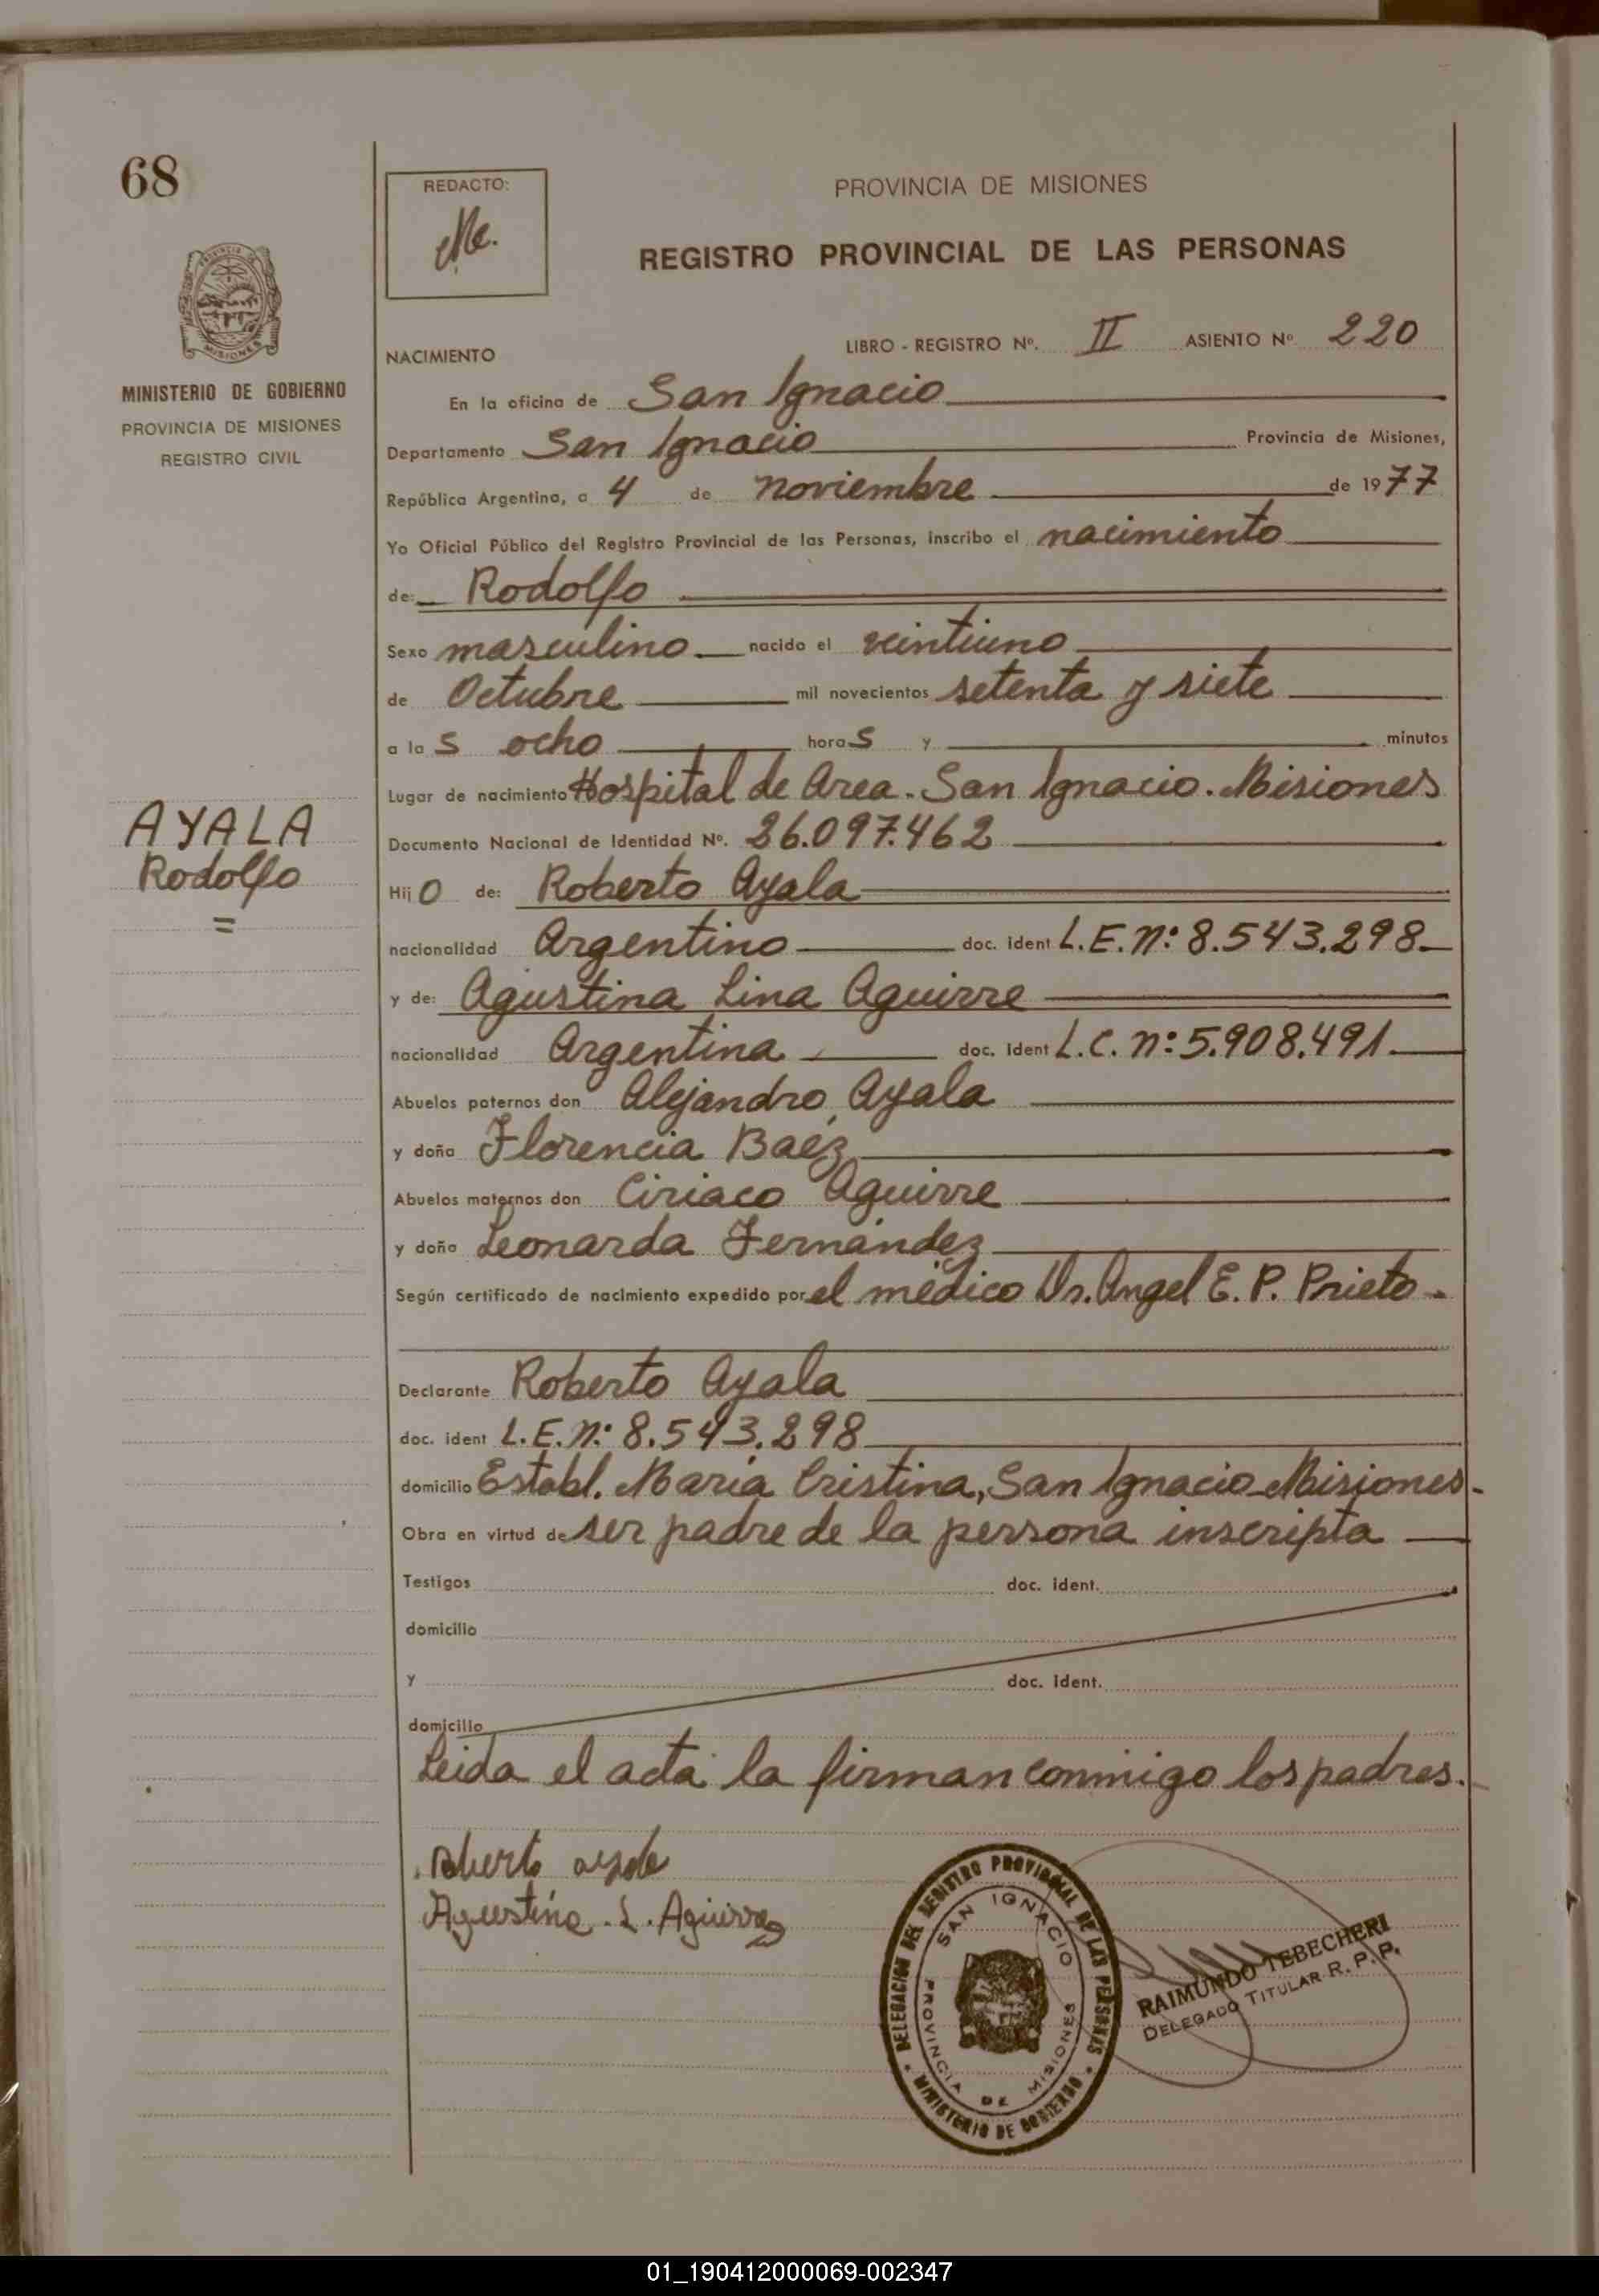 68
REDACTO:
PROVINCIA DE MISIONES
REGISTRO PROVINCIAL DE LAS PERSONAS
MISIONES
MINISTERIO DE GOBIERNO
PROVINCIA DE MISIONES
REGISTRO CIVIL
LIBRO - REGISTRO Nº. II ASIENTO Nº 220
NACIMIENTO
En la oficina de San Ignacio
Departamento San Ignacio Provincia de Misiones,
República Argentina, a 4 de noviembre de 1977
Yo Oficial Público del Registro Provincial de las Personas, inscribo el nacimiento
de: Rodolfo
Sexo masculino nacido el veintiuno
de Octubre mil novecientos setenta y siete
a las ocho horas y minutos
Lugar de nacimiento Hospital de Area. San Ignacio. Misiones
Documento Nacional de Identidad Nº. 26.097.462
AYALA
Rodolfo
=
Hijo de: Roberto Ayala
nacionalidad Argentino doc. ident L.E. nº 8.543.298
y de: Agustina Lina Aguirre
nacionalidad Argentina doc. ident L.C. nº 5.908.491
Abuelos paternos don Alejandro Ayala
y doña Florencia Baéz
Abuelos maternos don Ciriaco Aguirre
y doña Leonarda Fernández
Según certificado de nacimiento expedido por el médico Dr. Angel E. P. Prieto
Declarante Roberto Ayala
doc. ident L.E. nº 8.543.298
domicilio Establ. María Cristina, San Ignacio Misiones
Obra en virtud de ser padre de la persona inscripta
Testigos doc. ident.
domicilio
y doc. ident.
domicilio
Leida el acta la firman conmigo los padres.
Roberto ayala
Agustina. L. Aguirre
DELEGACION DEL REGISTRO PROVINCIAL DE LAS PERSONAS
SAN IGNACIO
PROVINCIA DE MISIONES
MINISTERIO DE GOBIERNO
RAIMUNDO TEBECHERI
DELEGADO TITULAR R. P. P.
01_190412000069-002347